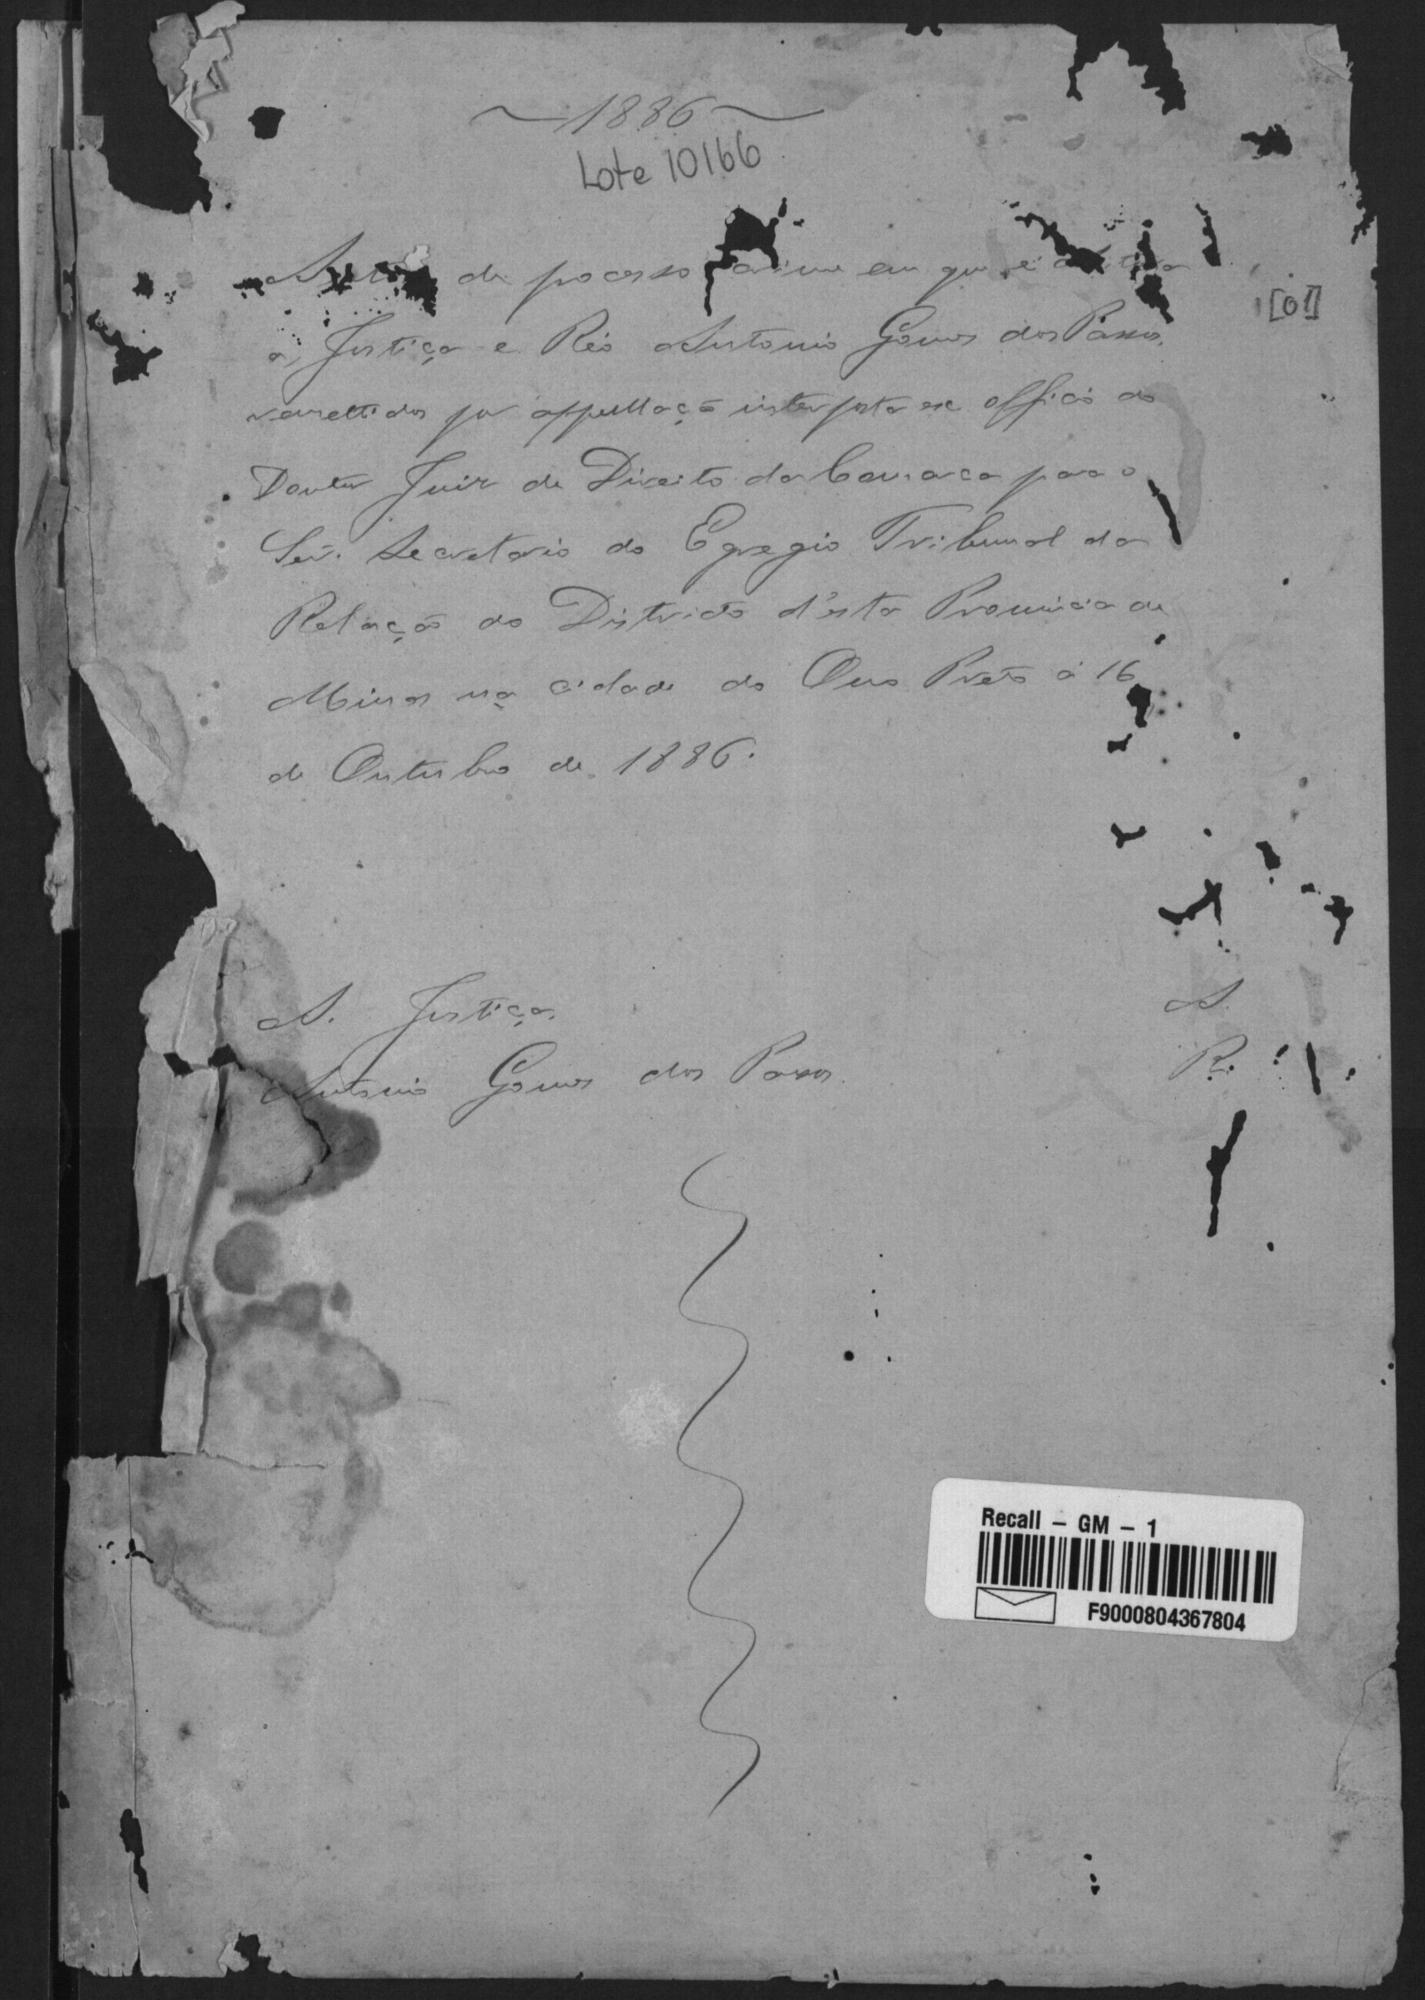 1886
Lote 10166
Autos de processo crime em que é autora
[01]
a Justiça e Réo Antonio Gomes dos Passos,
remettidos por appellação interposta ex officio do
Doutor Juiz de Direito da Comarca para o
Snr. Secretario do Egregio Tribunal da
Relação do Districto d'esta Provincia de
Minas na cidade do Ouro Preto á 16
de Outubro de 1886.
A. Justiça. A.
Antonio Gomes dos Passos. R.
Recall – GM – 1
F9000804367804